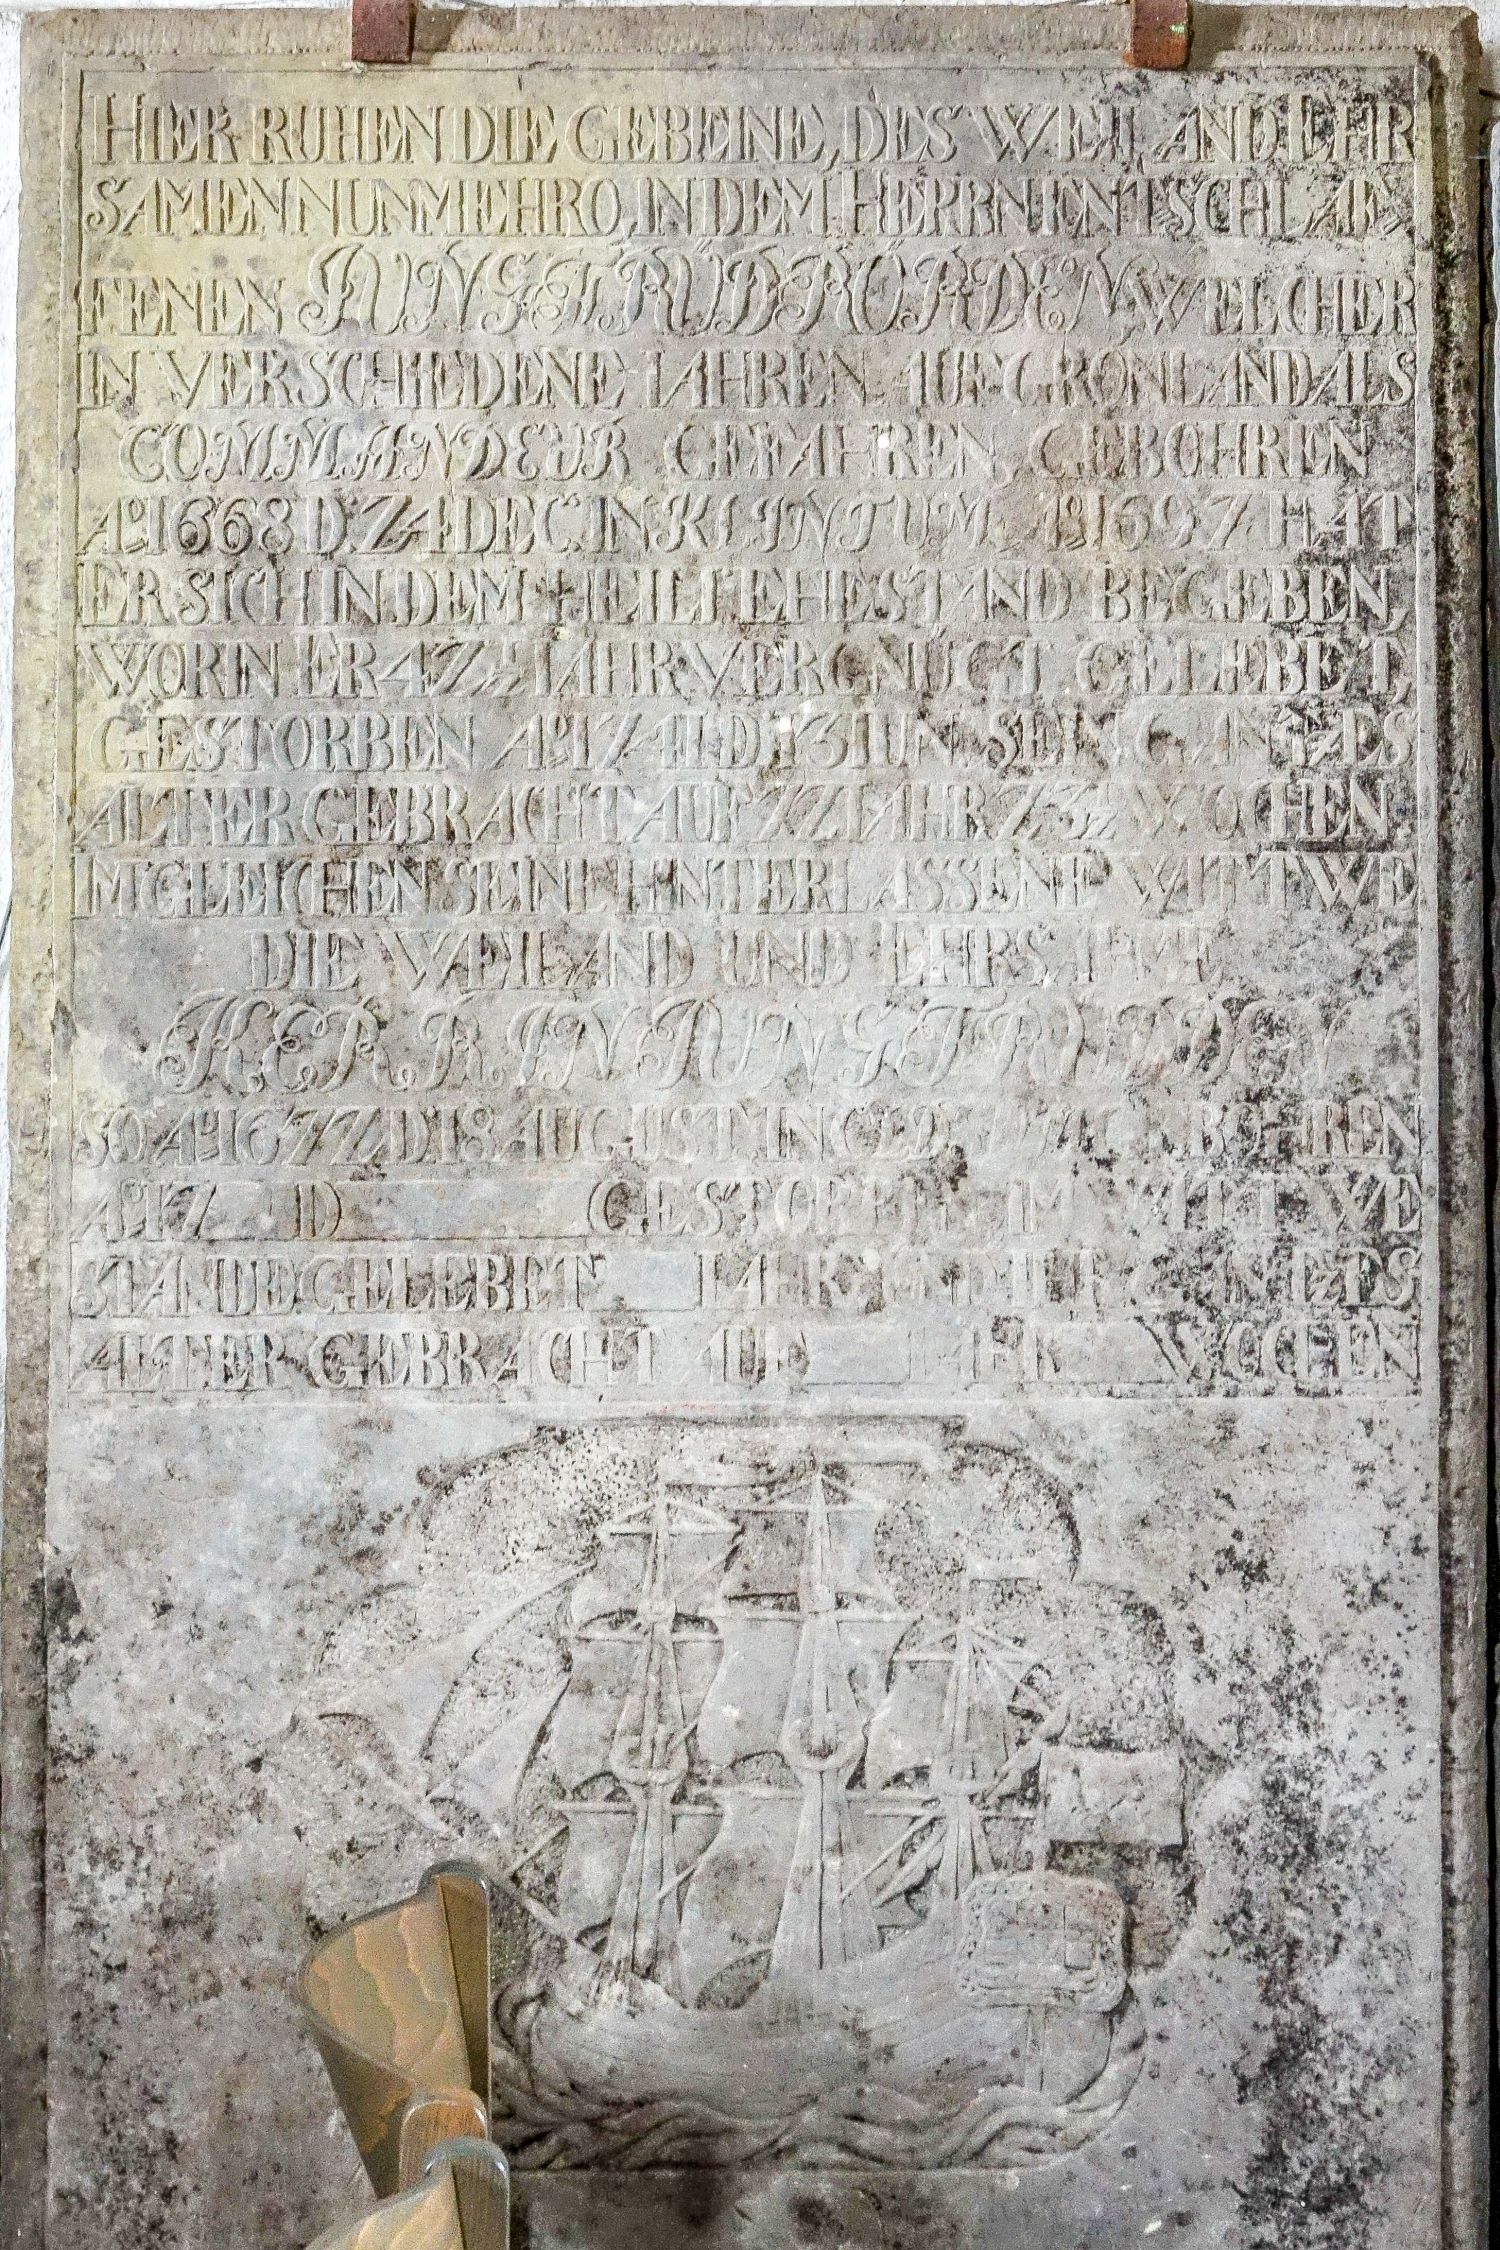 HIER RUHEN DIE GEBEINE, DES WEILAND EHR
SAMEN NUNMEHRO, IN DEM HERRN ENTSCHLAF
FENEN JUNGE RÜRD RÖRDEN WELCHER
IN VERSCHIEDENE IAHREN AUF GRÖNLAND ALS
COMMANDEUR GEFAHREN, GEBOHREN
Aº. 1668 D. 24 DEC. IN KLINTUM, Aº 1697 HAT
ER SICH IN DEM HEILI EHESTAND BEGEBEN,
WORIN ER 42 ½ IAHR VERGNÜGT GELEBET,
GESTORBEN Aº. 1741 D 13 IUN. SEIN GANTZES
ALTER GEBRACHT AUF 72 IAHR 23 ½ WOCHEN
IMGLEICHEN SEINE HINTERLASSENE WITTWE
DIE WEILAND UND EHRSAHME
KERRIN JUNG
SO Aº. 1672 D 18 AUGUST. IN GEBOHREN
Aº. 17 D GESTORBEN IM WITTWE
STANDE GELEBET IAHR UND IHR GANTZES
ALTER GEBRACHT AUF IAHR WOCHEN